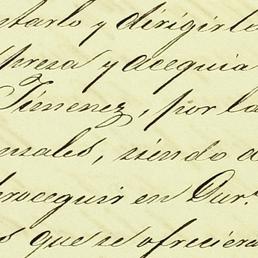 ntarlo y dirigirlo
presa y acequia
Timenez, por la
nsales, siendo d
proceguir en Dur.
s que se ofreciera